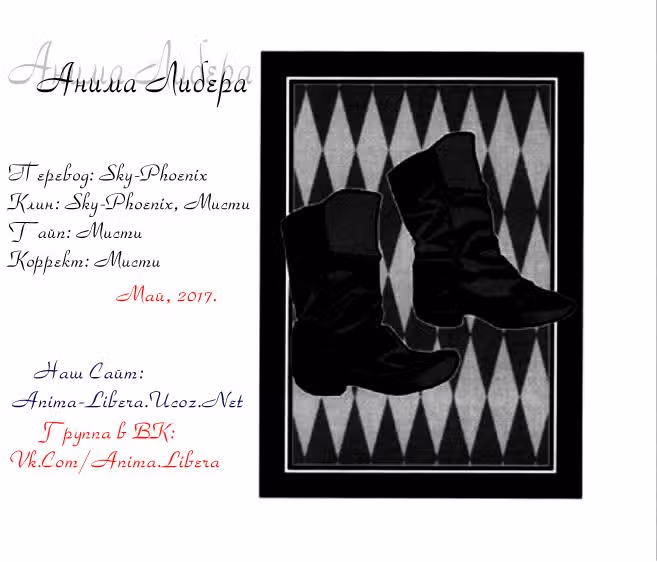 Анима Либера
Перевод: Sky-Phoenix
Клин: Sky-Phoenix, Мисти
Тайп: Мисти
Коррект: Мисти
Май, 2017.
Наш Сайт:
Anima-Libera.Ucoz.Net
Группа в ВК:
Vk.Com/Anima.Libera